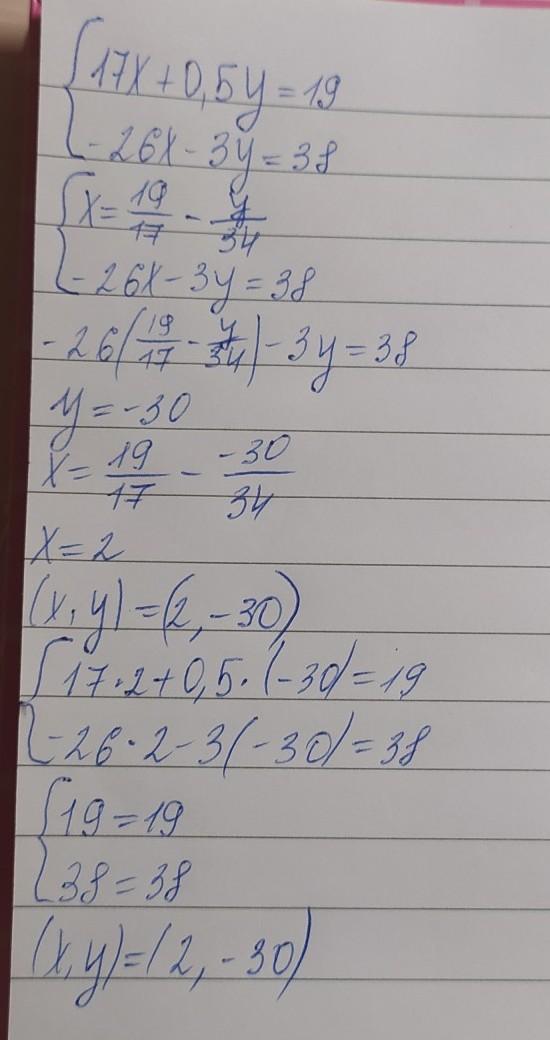 17x+0,5y=19
-26x-3y=38
x=19/17-y/34
-26x-3y=38
-26(19/17-y/34)-3y=38
y=-30
x=19/17--30/34
x=2
(x,y)=(2,-30)
17·2+0,5·(-30)=19
-26·2-3(-30)=38
19=19
38=38
(x,y)=(2,-30)